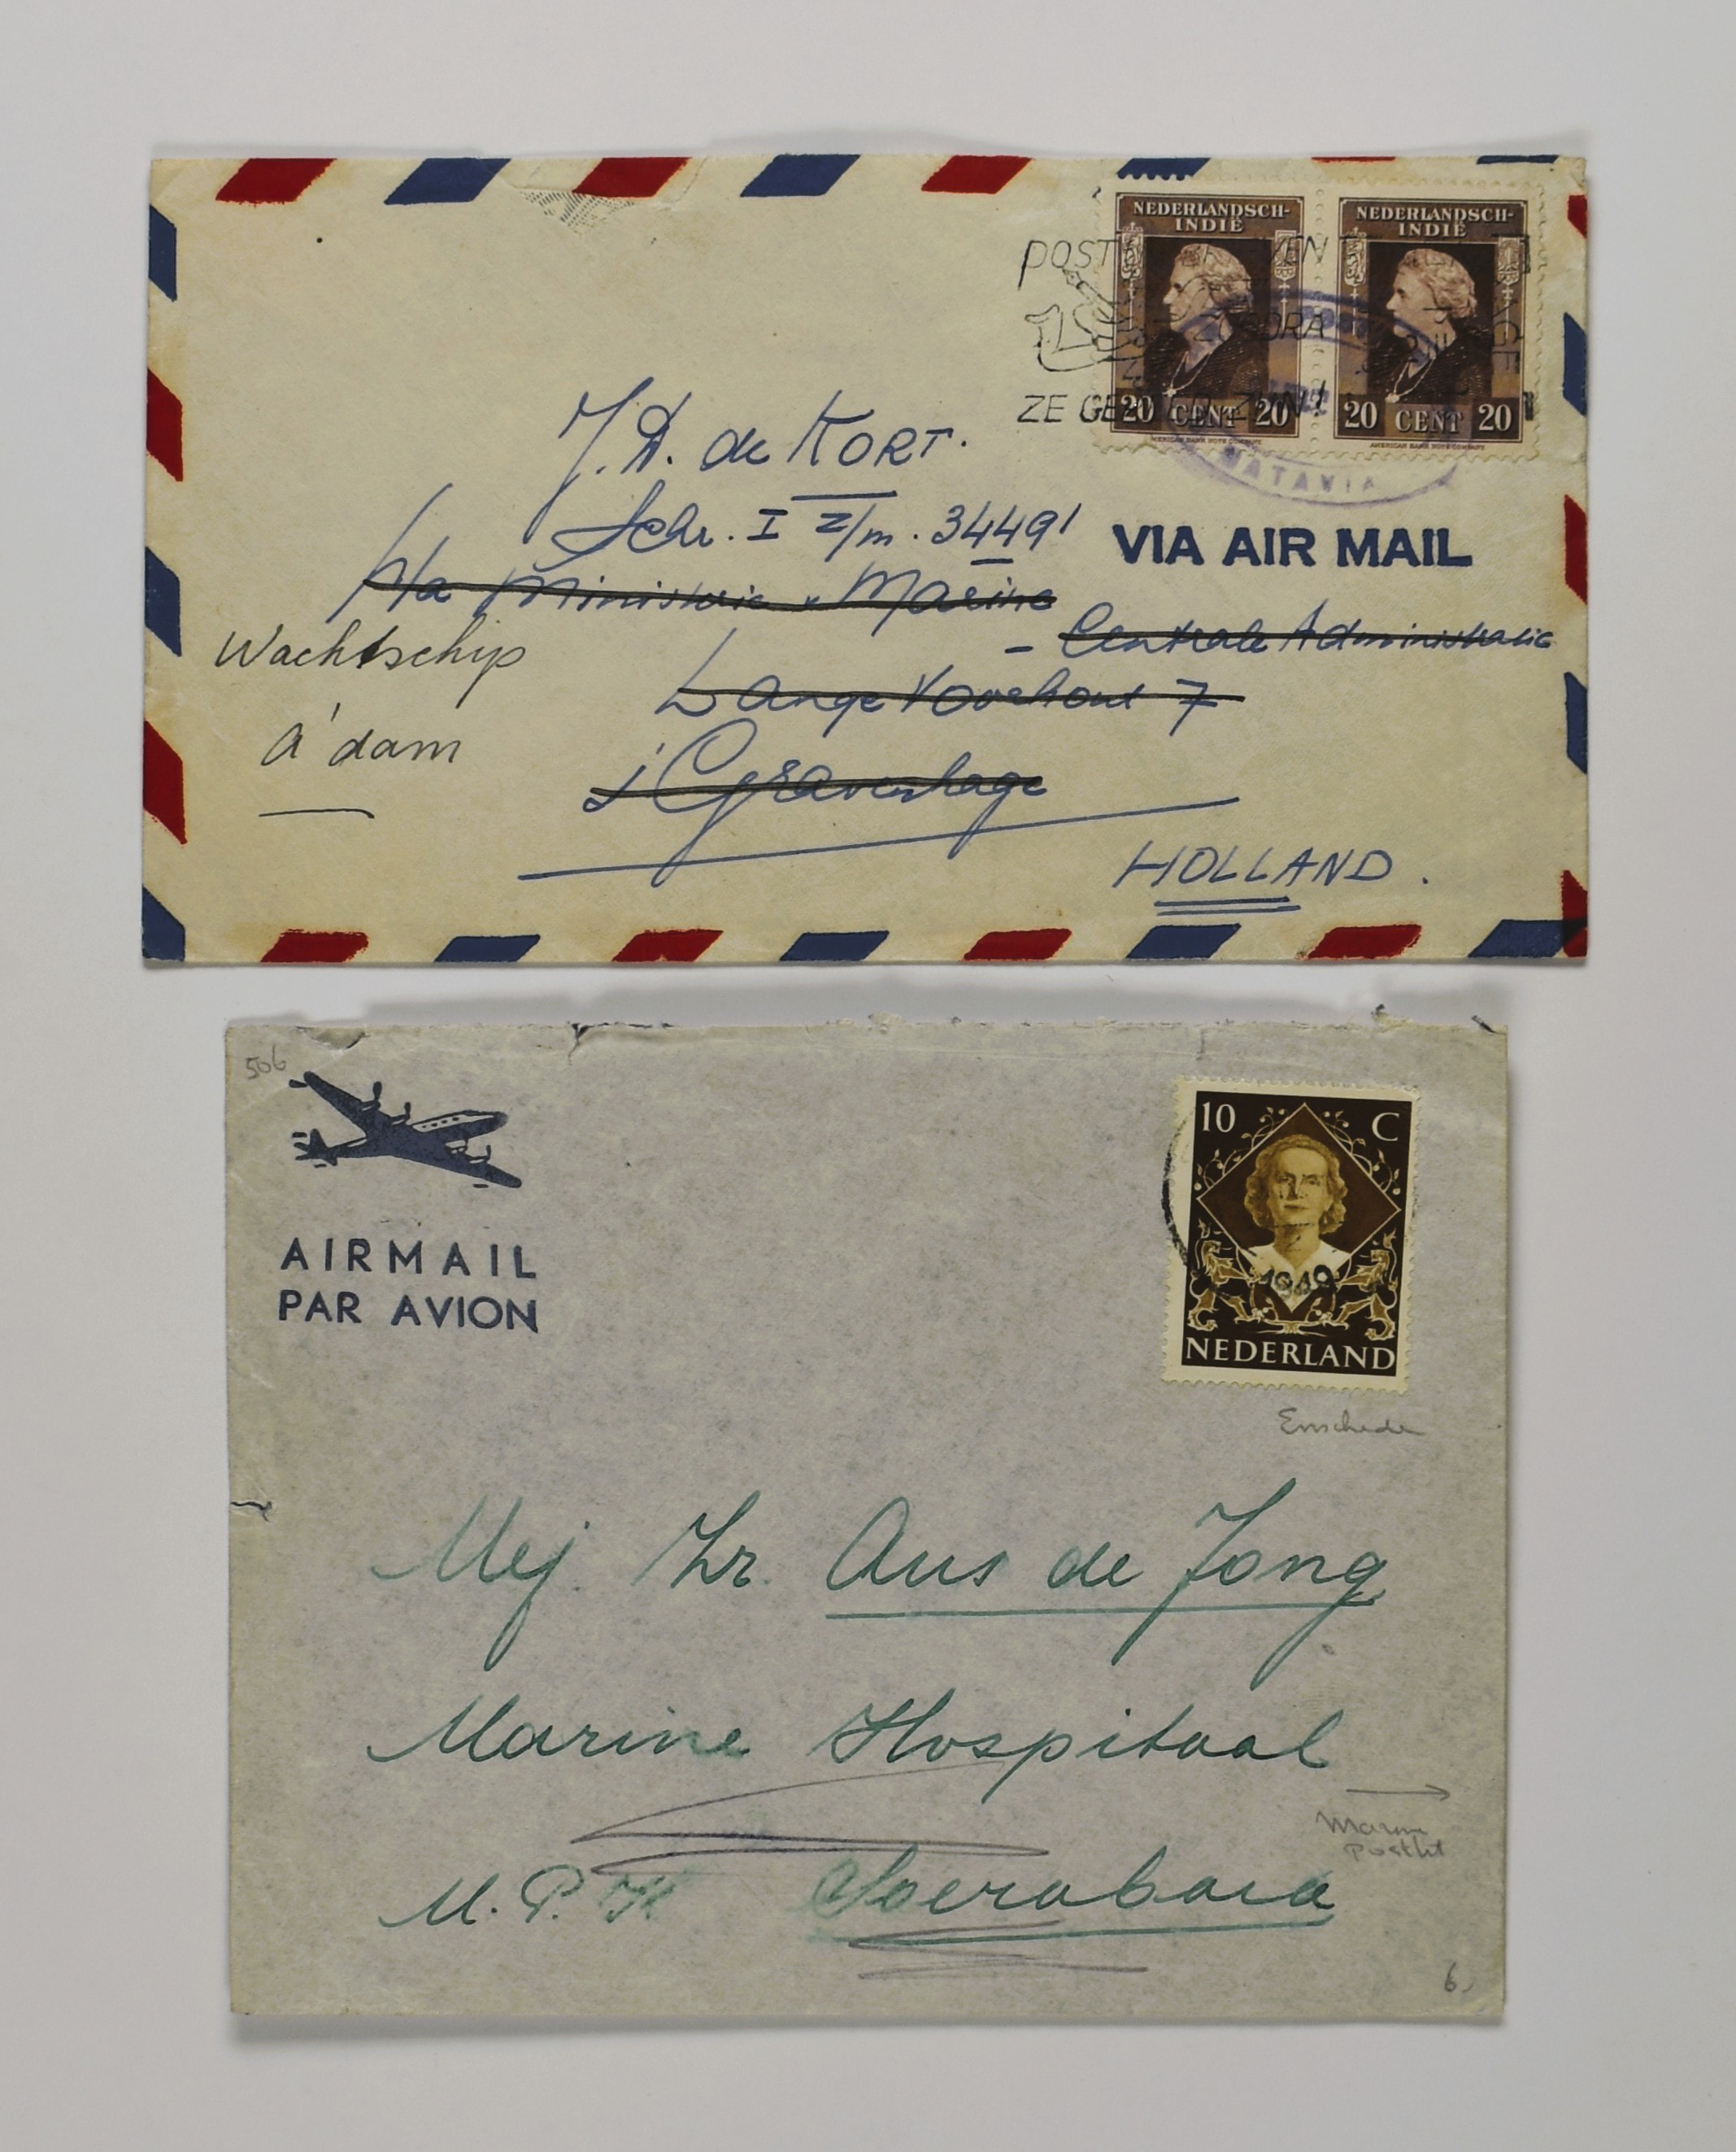 NEDERLANDSCH-
INDIË
20 CENT 20
AMERICAN BANK NOTE COMPANY
NEDERLANDSCH-
INDIË
20 CENT 20
AMERICAN BANK NOTE COMPANY
POST
ZE
BATAVIA
VIA AIR MAIL
J. D. de KORT.
Schr. I z/m. 34491
p/a Ministerie v Marine
- Centrale Administratie
Lange Voorhout 7
s'Gravenhage
HOLLAND.
Wachtschip
A'dam
506
AIRMAIL
PAR AVION
10 C
1949
NEDERLAND
Enschede
Mej. Zr. Aus de Jong
Marine Hospitaal
Marine
M.P.K Soerabaia
6